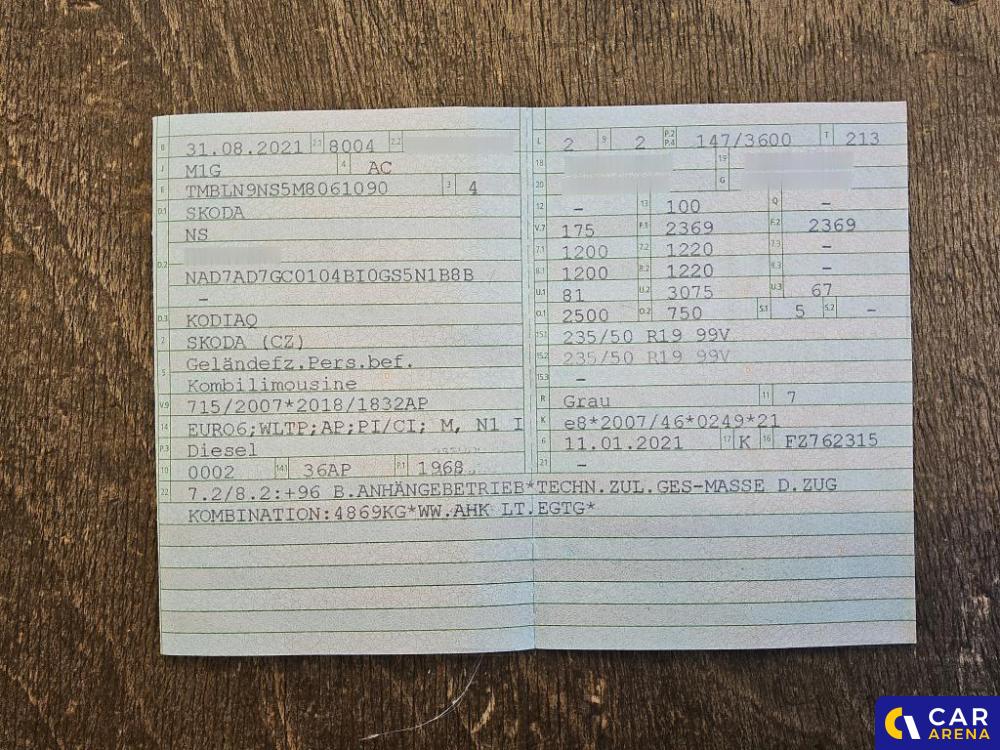 B 31.08.2021 2.1 8004 2.2
J M1G 4 AC
E TMBLN9NS5M8061090 3 4
D.1 SKODA
NS
D.2
NAD7AD7GC0104BI0GS5N1B8B
–
D.3 KODIAQ
2 SKODA (CZ)
5 Geländefz.Pers.bef.
Kombilimousine
V.9 715/2007*2018/1832AP
14 EURO6;WLTP;AP;PI/CI; M, N1 I
P.3 Diesel
10 0002 14.1 36AP P.1 1968
22 7.2/8.2:+96 B.ANHÄNGEBETRIEB*TECHN.ZUL.GES-MASSE D.ZUG
KOMBINATION:4869KG*WW.AHK LT.EGTG*
L 2 9 2 P.2 P.4 147/3600 T 213
18 19
20 G
12 – 13 100 Q –
V.7 175 F.1 2369 F.2 2369
7.1 1200 7.2 1220 7.3 –
8.1 1200 8.2 1220 8.3 –
U.1 81 U.2 3075 U.3 67
O.1 2500 O.2 750 S.1 5 S.2 –
15.1 235/50 R19 99V
15.2 235/50 R19 99V
15.3 –
R Grau 11 7
K e8*2007/46*0249*21
6 11.01.2021 17 K 16 FZ762315
21 –
CAR
ARENA